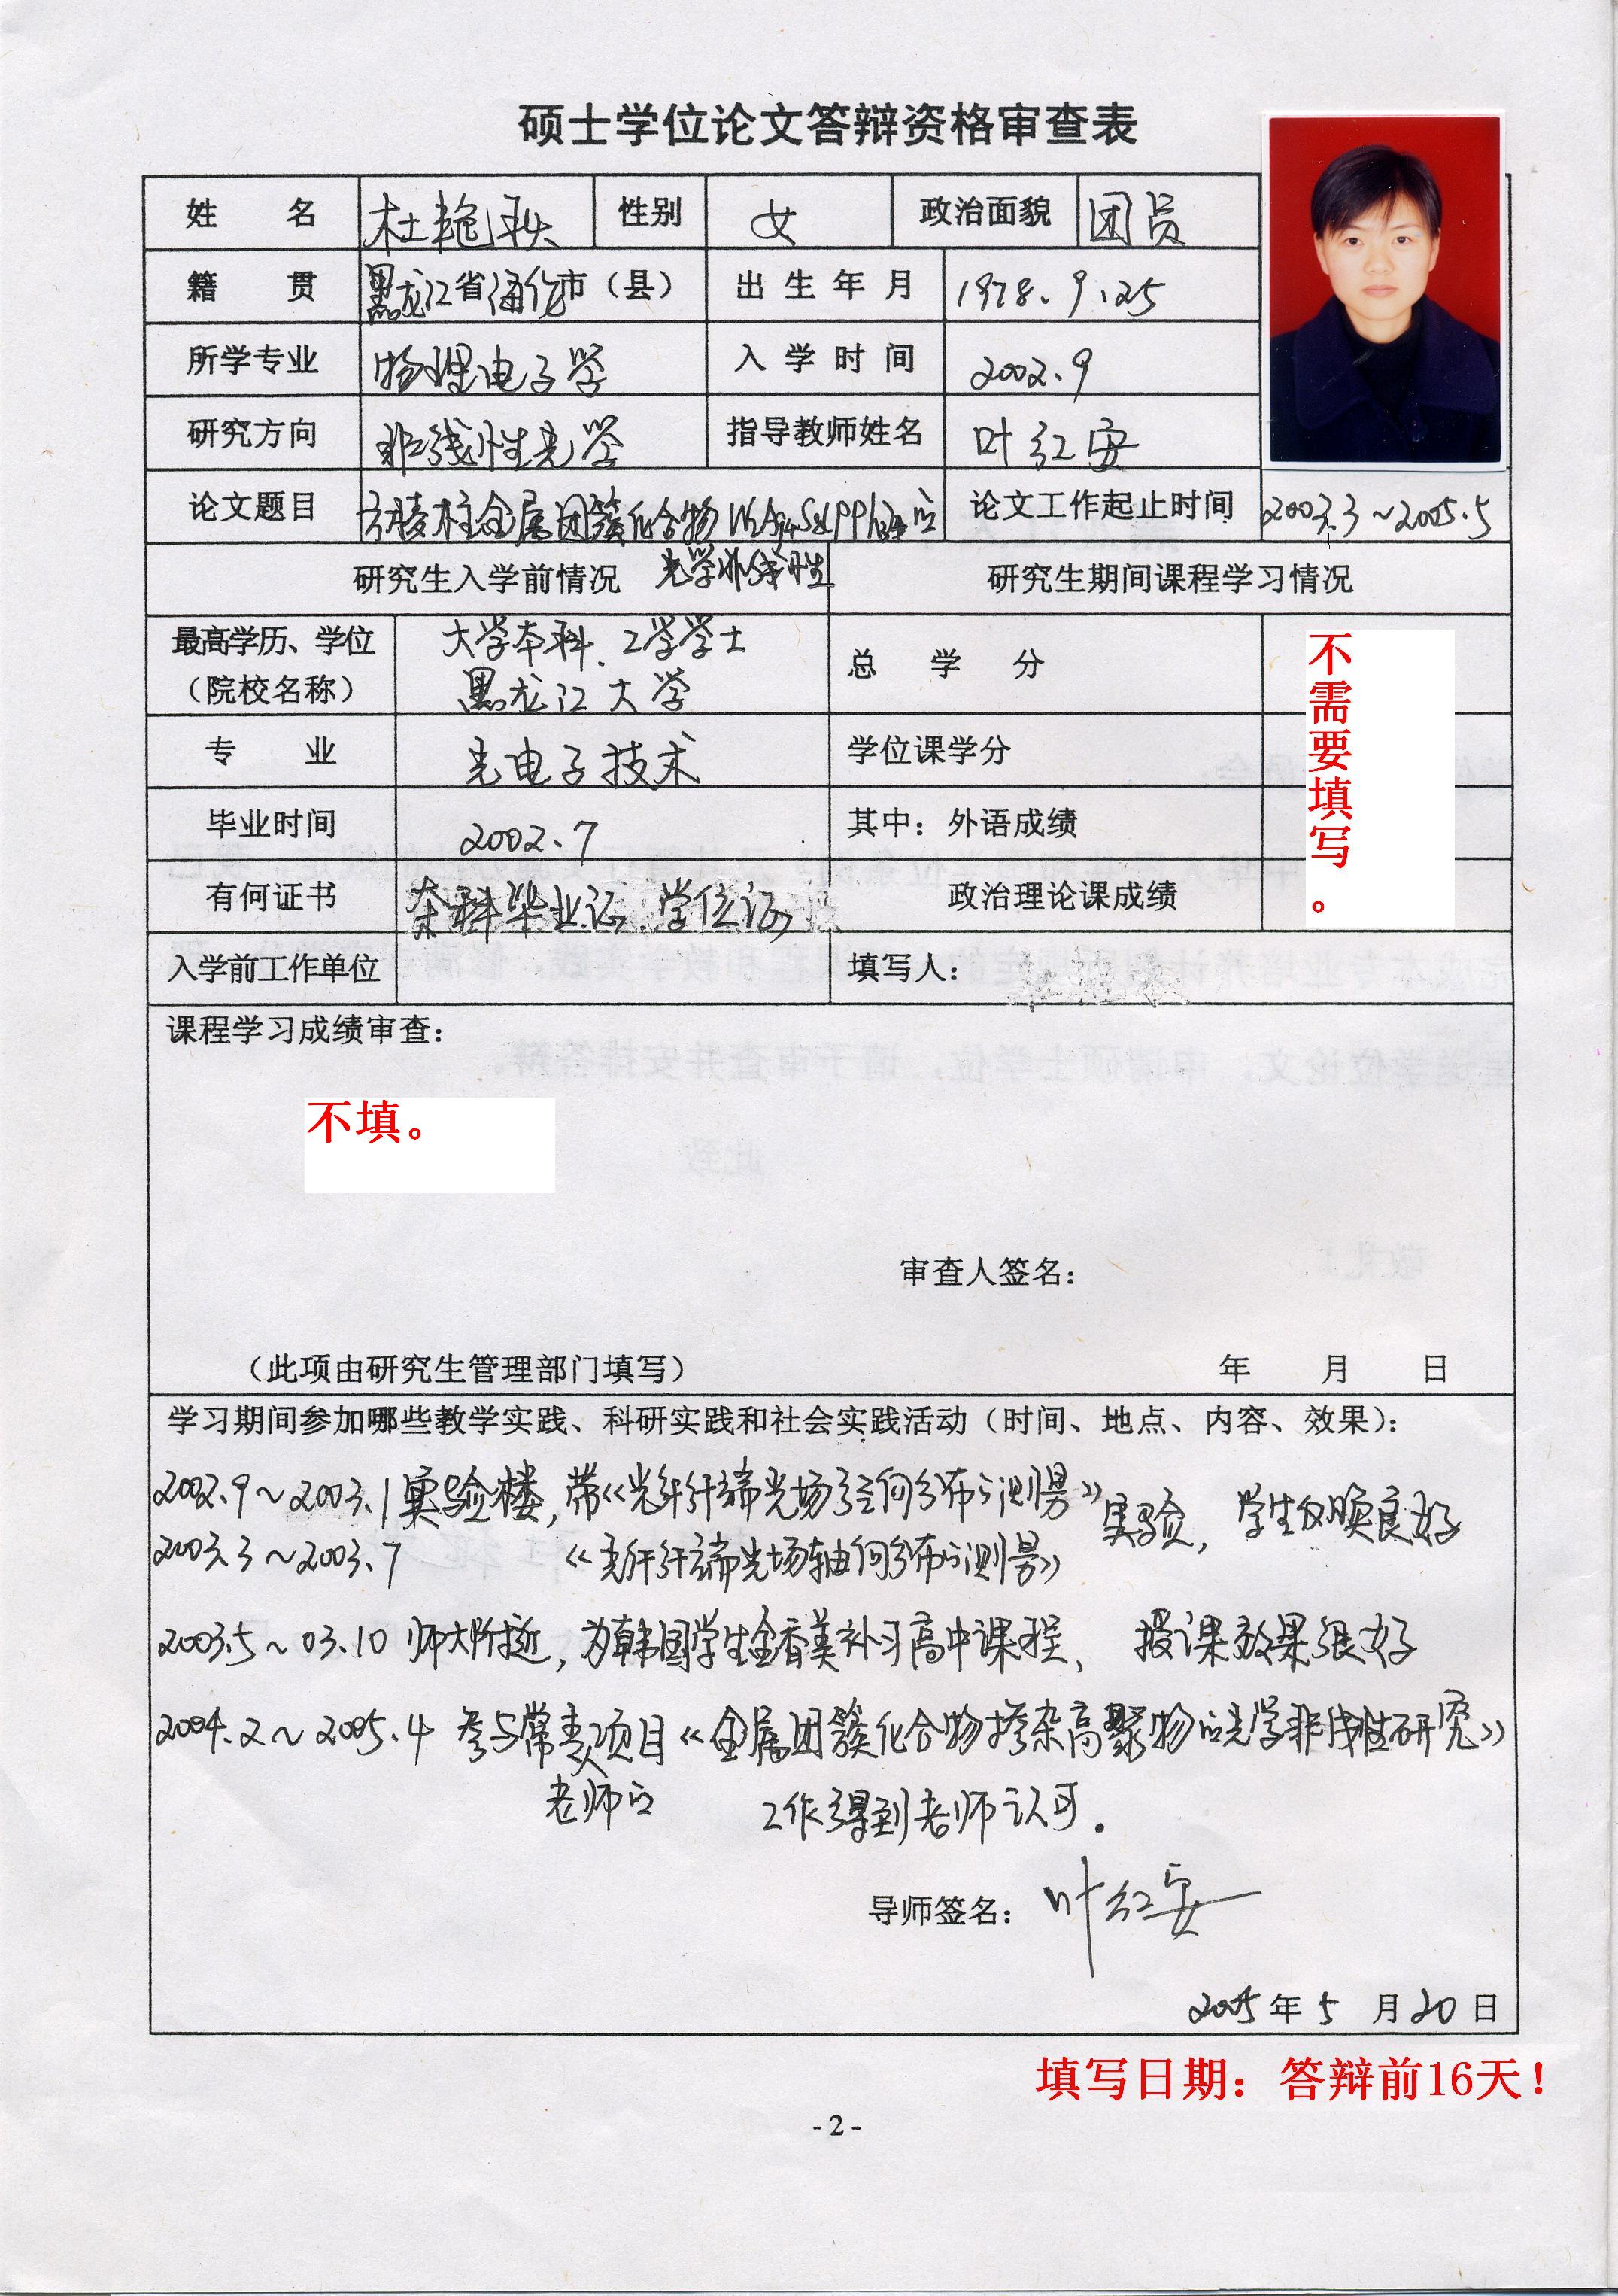 硕士学位论文答辩资格审查表
姓 名 杜艳秋 性别 女 政治面貌 团员
籍 贯 黑龙江省海伦市（县） 出生年月 1978.9.25
所学专业 物理电子学 入学时间 2002.9
研究方向 非线性光学 指导教师姓名 叶红安
论文题目 六棱柱金属团簇化合物 的 论文工作起止时间 2003.3～2005.5
光学非线性
研究生入学前情况 研究生期间课程学习情况
最高学历、学位 大学本科、工学学士
（院校名称） 黑龙江大学
总 学 分
不需要填写。
专 业 光电子技术 学位课学分
毕业时间 2002.7 其中：外语成绩
有何证书 本科毕业证、学位证 政治理论课成绩
入学前工作单位 填写人：
课程学习成绩审查：
不填。
审查人签名：
（此项由研究生管理部门填写） 年 月 日
学习期间参加哪些教学实践、科研实践和社会实践活动（时间、地点、内容、效果）：
2002.9～2003.1 实验楼，带《光纤纤端光场径向分布的测量》实验，学生反映良好
2003.3～2003.7 《光纤纤端光场轴向分布的测量》
2003.5～03.10 师大附近，为韩国学生金香美补习高中课程，授课效果很好
2004.2～2005.4 参与常青项目《金属团簇化合物掺杂高聚物的光学非线性研究》
老师的 工作得到老师认可。
导师签名：叶红安
2005年5月20日
填写日期：答辩前16天！
-2-